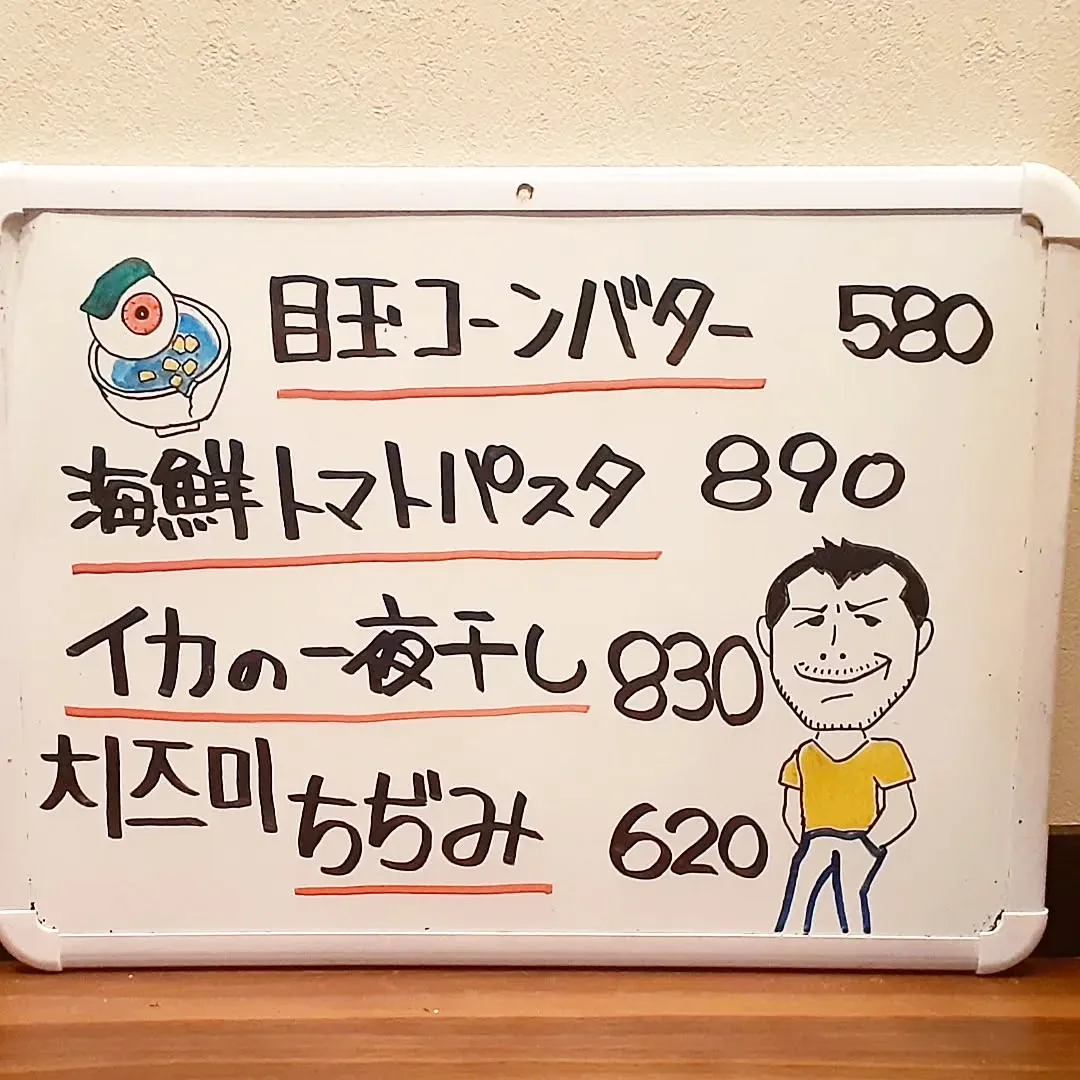 目玉コーンバター 580
海鮮トマトパスタ 890
イカの一夜干し 830
치즈미 ちぢみ 620